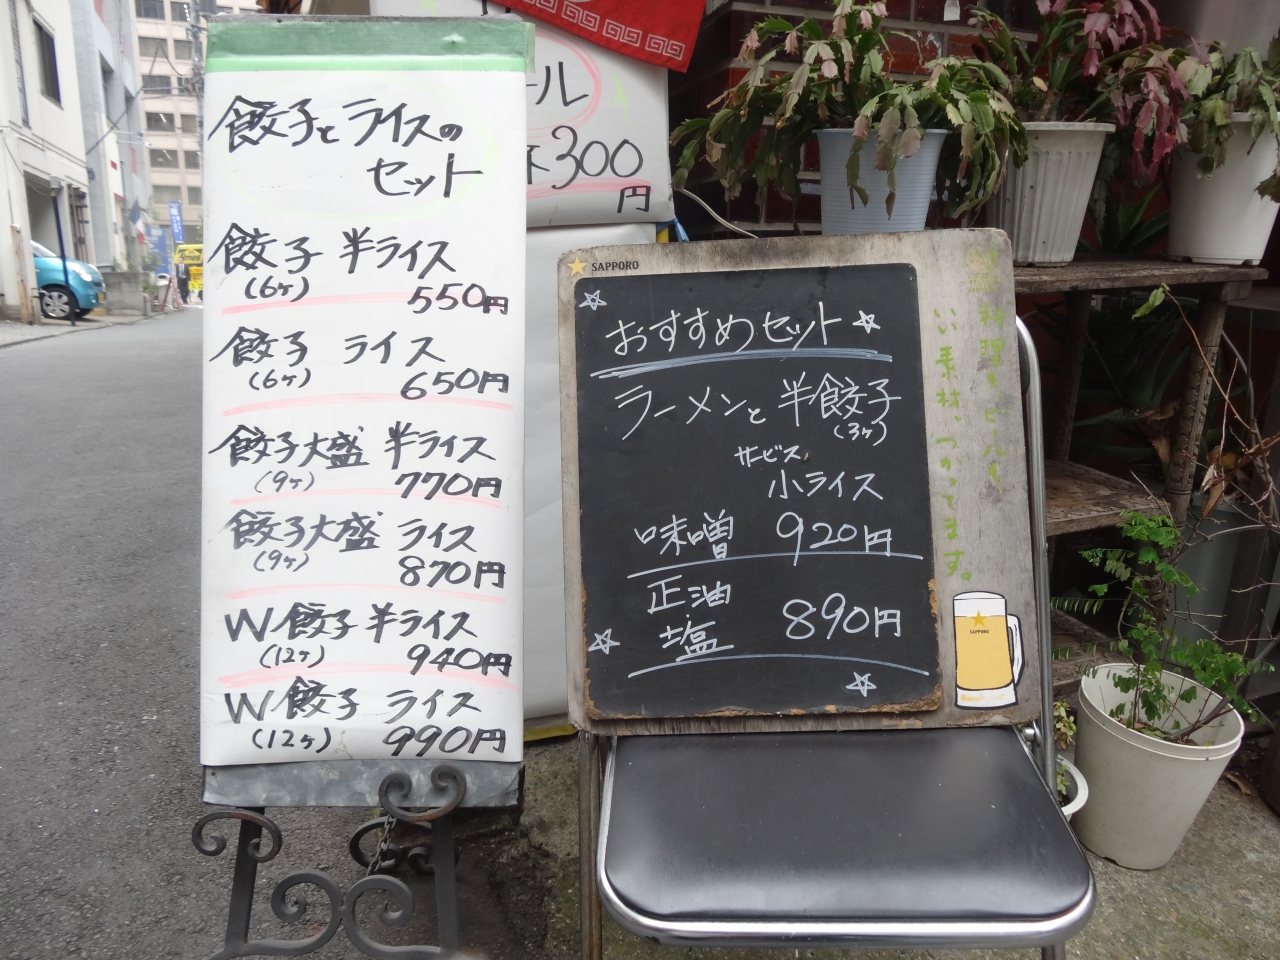 餃子とライスの
セット
餃子 半ライス
(6ヶ) 550円
餃子 ライス
(6ヶ) 650円
餃子大盛 半ライス
(9ヶ) 770円
餃子大盛 ライス
(9ヶ) 870円
W餃子 半ライス
(12ヶ) 940円
W餃子 ライス
(12ヶ) 990円
ール
300
円
SAPPORO
おすすめセット
ラーメンと 半餃子
(3ヶ)
サービス
小ライス
味噌 920円
正油
塩 890円
料理もビールも
い素材、つかってます。
SAPPORO
Times